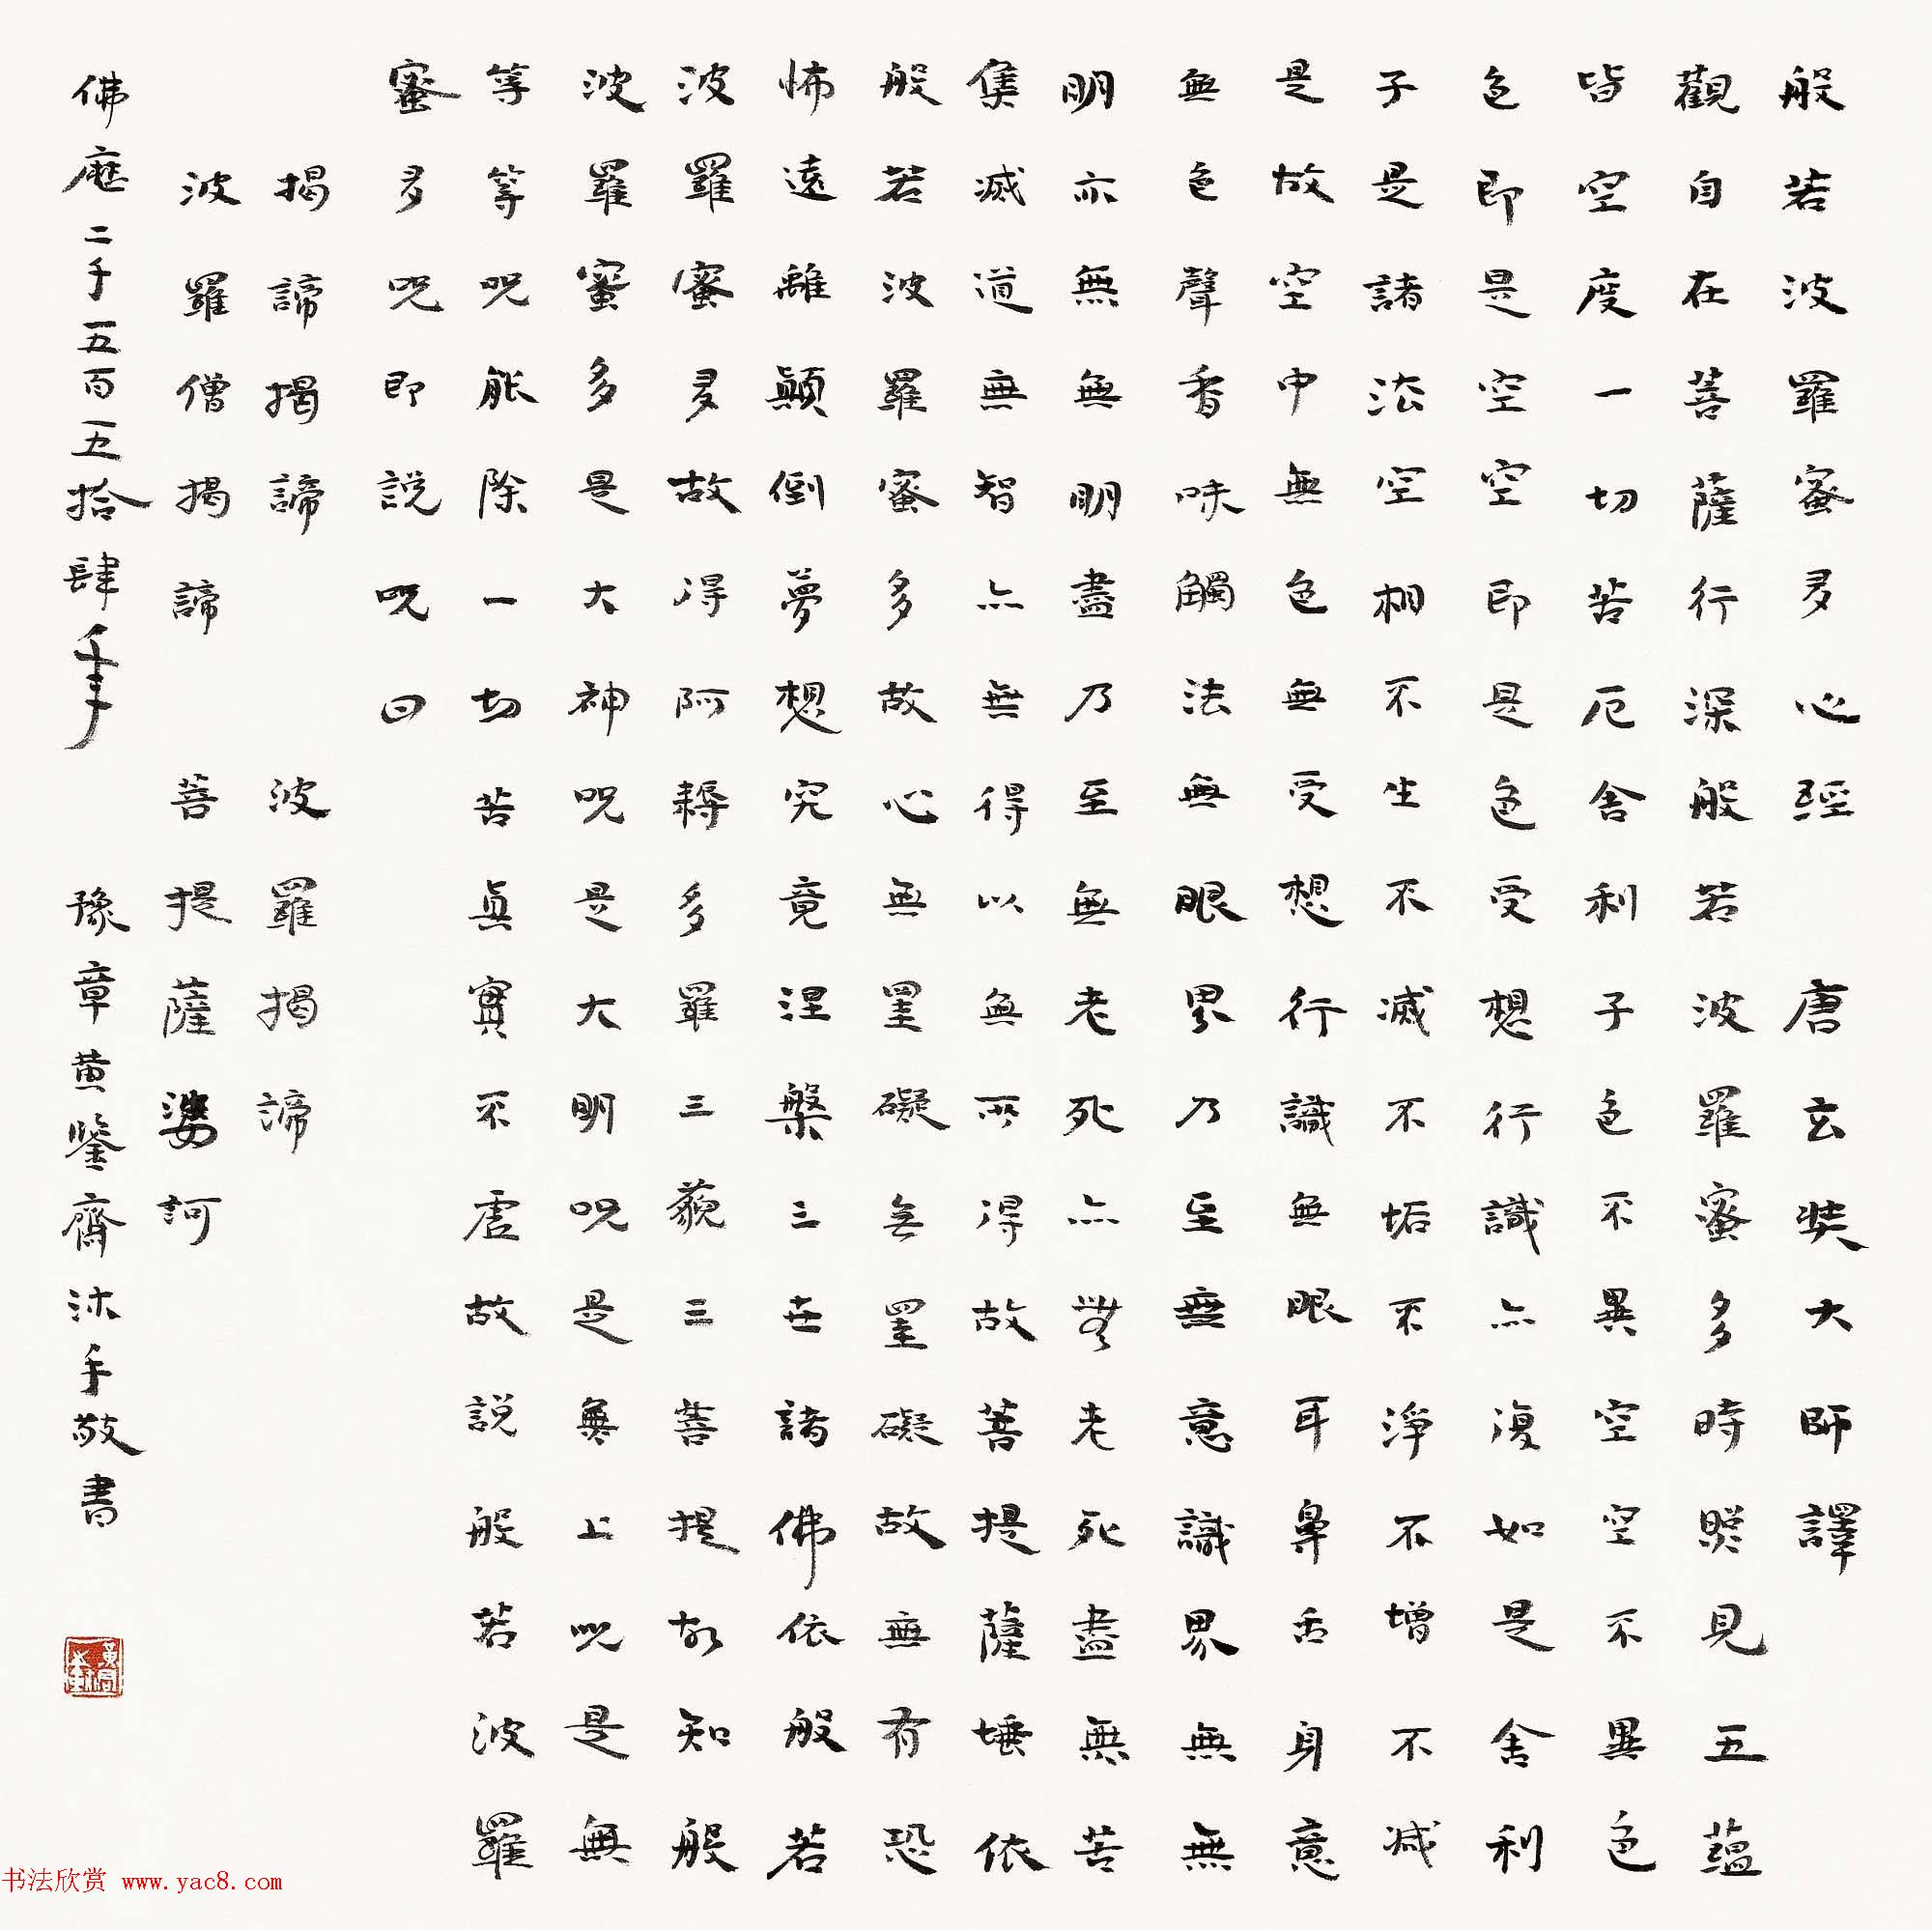 般若波羅蜜多心經 唐玄奘大師譯
觀自在菩薩行深般若波羅蜜多時照見五蘊
皆空度一切苦厄舍利子色不異空空不異色
色即是空空即是色受想行識亦復如是舍利
子是諸法空相不生不滅不垢不淨不增不減
是故空中無色無受想行識無眼耳鼻舌身意
無色聲香味觸法無眼界乃至無意識界無無
明亦無無明盡乃至無老死亦無老死盡無苦
集滅道無智亦無得以無所得故菩提薩埵依
般若波羅蜜多故心無罣礙無罣礙故無有恐
怖遠離顛倒夢想究竟涅槃三世諸佛依般若
波羅蜜多故得阿耨多羅三藐三菩提故知般
波羅蜜多是大神呪是大明呪是無上呪是無
等等呪能除一切苦真實不虛故說般若波羅
蜜多呪即說呪曰
揭諦揭諦 波羅揭諦
波羅僧揭諦 菩提薩婆訶
佛歷二千五百五拾肆年 豫章黄鑒齋沐手敬書
书法欣赏 www.yac8.com